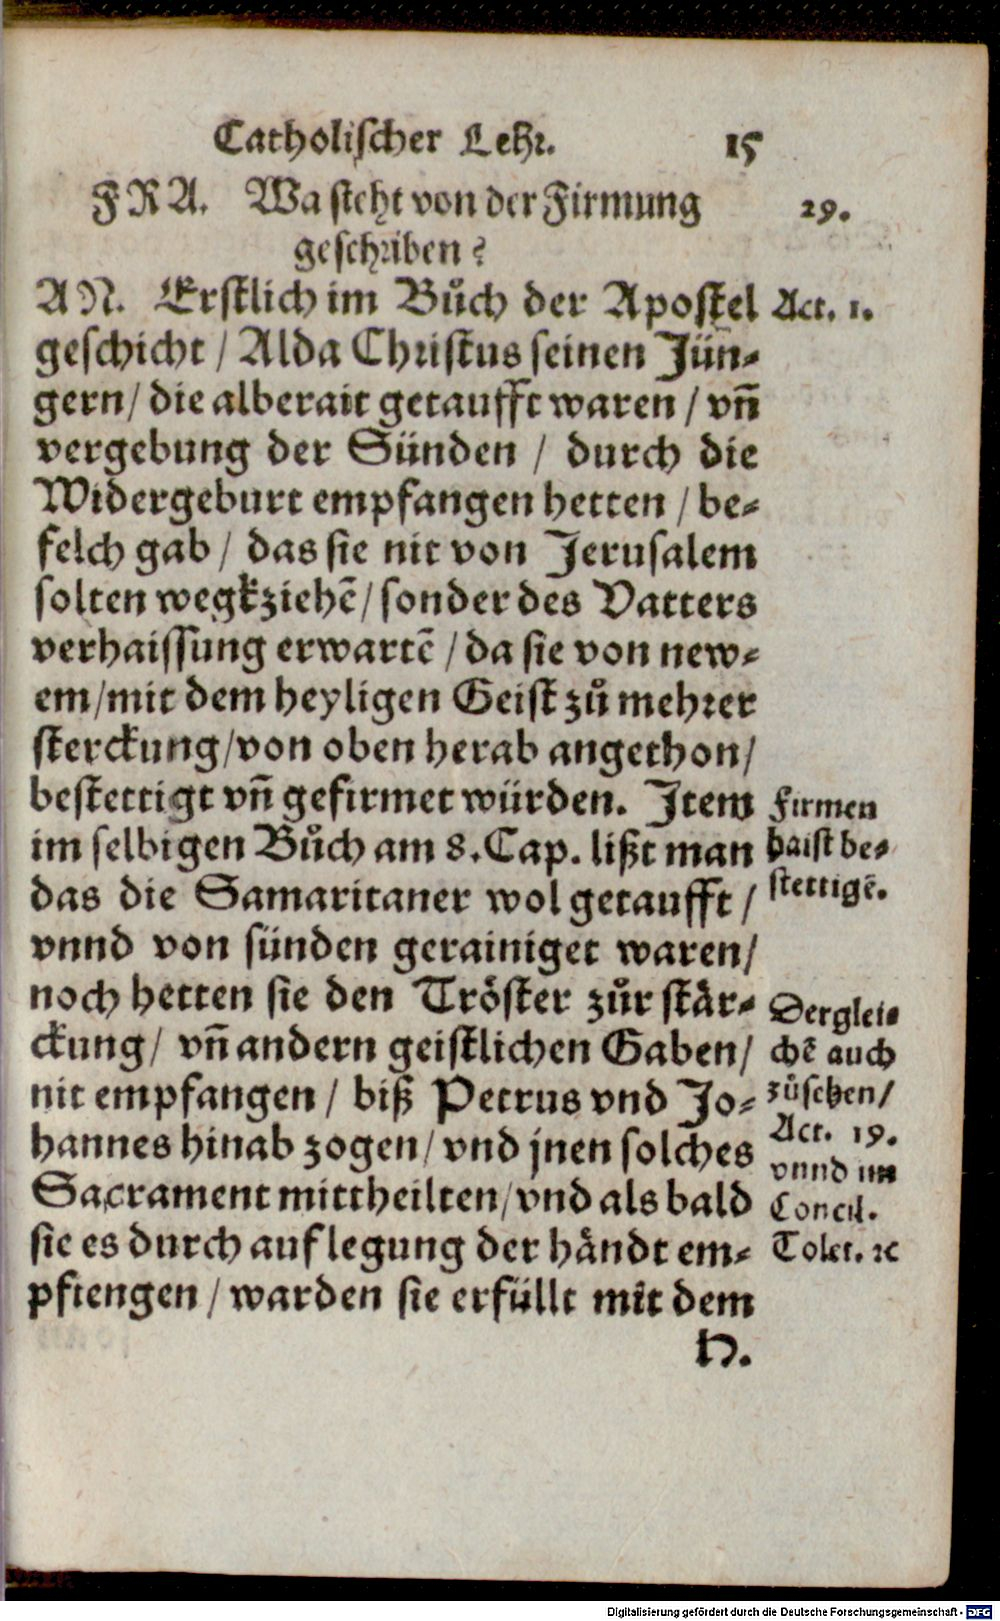 Catholischer Lehr. 15
FRA. Wa steht von der Firmung 29.
geschriben?
AN. Erstlich im Bůch der Apostel Act. 1.
geschicht / Alda Christus seinen Jün-
gern / die alberait getaufft waren / vn̄
vergebung der Sünden / durch die
Widergeburt empfangen hetten / be-
felch gab / das sie nit von Jerusalem
solten wegkziehē / sonder des Vatters
verhaissung erwartē / da sie von new-
em / mit dem heyligen Geist zů mehrer
sterckung / von oben herab angethon /
bestettigt vn̄ gefirmet würden. Item
im selbigen Bůch am 8. Cap. lißt man
das die Samaritaner wol getaufft /
vnnd von sünden gerainiget waren /
noch hetten sie den Tröster zůr stär-
ckung / vn̄ andern geistlichen Gaben /
nit empfangen / biß Petrus vnd Jo-
hannes hinab zogen / vnd jnen solches
Sacrament mittheilten / vnd als bald
sie es durch auflegung der händt em-
pfiengen / warden sie erfüllt mit dem
H.
Firmen
haist be-
stettigē.
Derglei-
chē auch
zůsehen /
Act. 19.
vnnd im
Concil.
Tolet. ꝛc
Digitalisierung gefördert durch die Deutsche Forschungsgemeinschaft - DFG